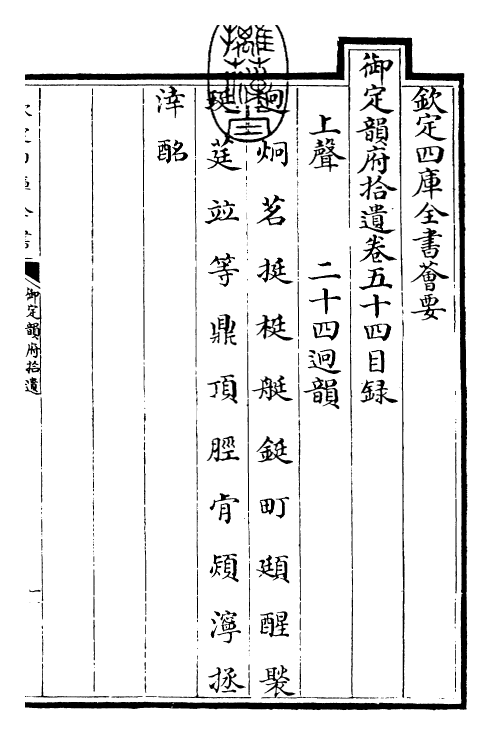 欽定四庫全書薈要
御定韻府拾遺卷五十四目録
上聲 二十四迥韻
迥炯茗挺梃艇鋌町頲醒褧
莛竝等鼎頂脛肯熲濘拯
涬酩
御定韻府拾遺
一